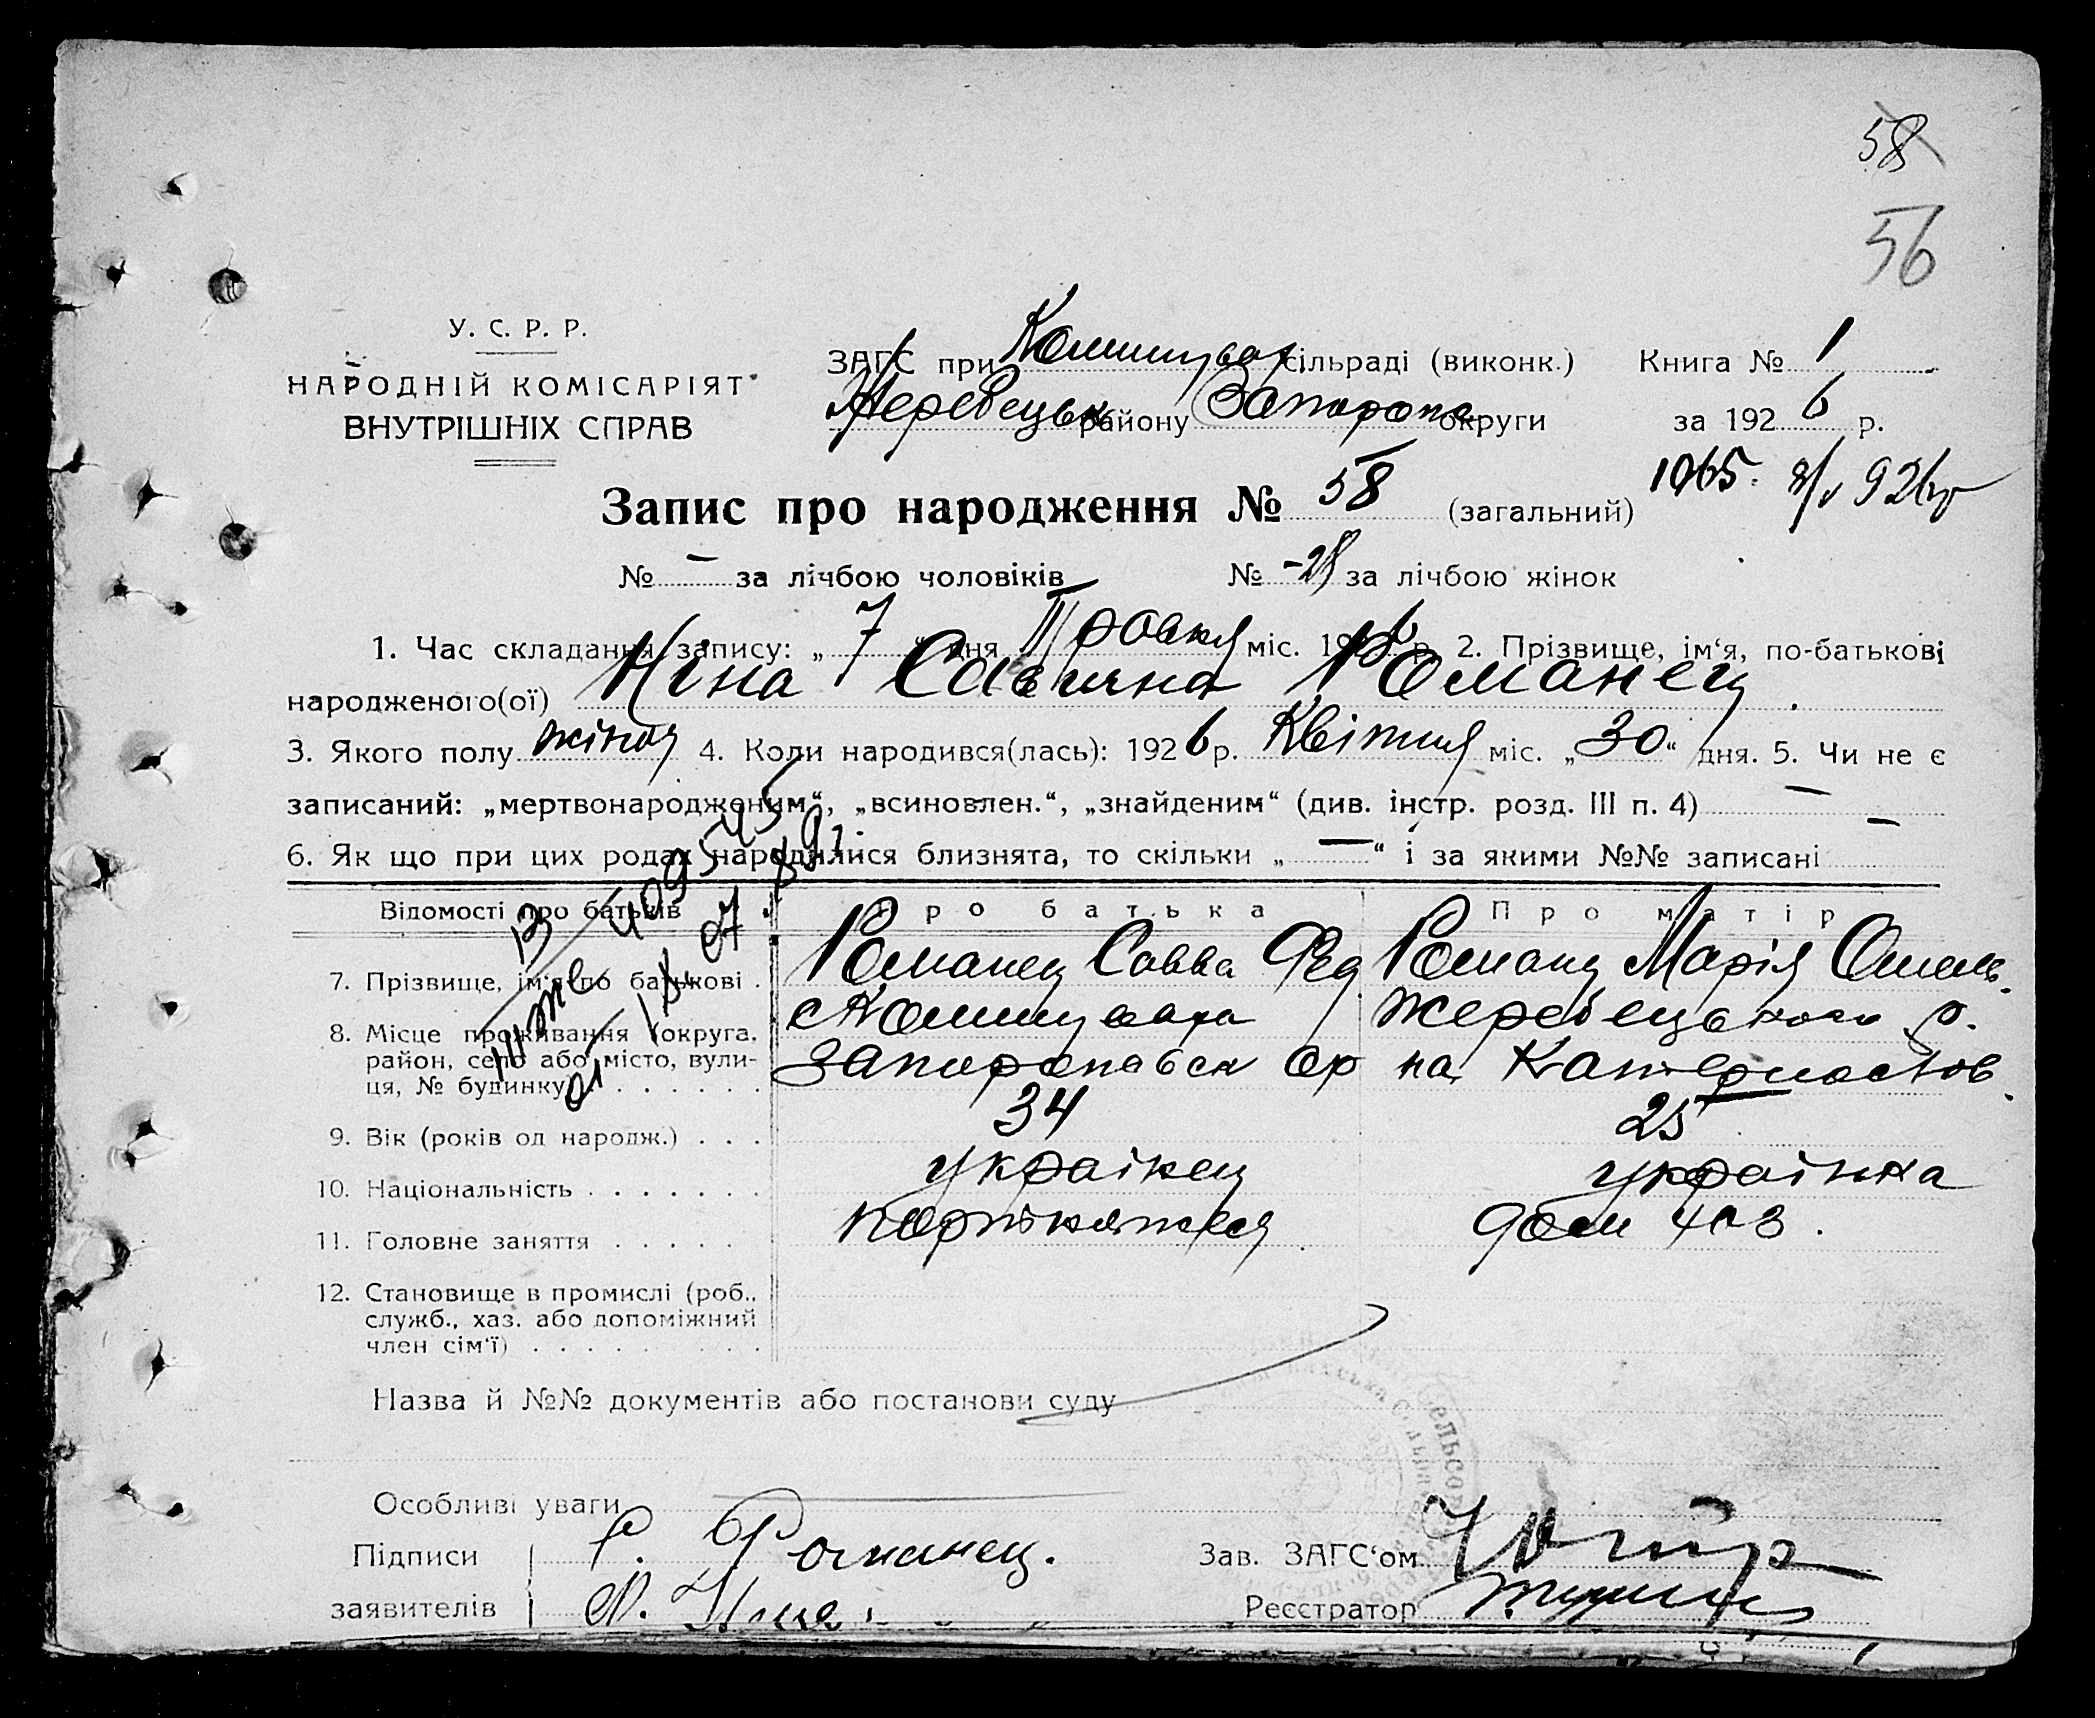 58
56
У. С. Р. Р.
НАРОДНІЙ КОМІСАРІЯТ
ВНУТРІШНІХ СПРАВ
ЗАГС при Комишувах сільраді (виконк.) Книга № 1
Жеребецьк району Запорожс округи за 1926 р.
Запис про народження № 58 (загальний)
№ — за лічбою чоловіків № -28 за лічбою жінок
1. Час складання запису: „7“ дня Травня міс. 1926 р. 2. Прізвище, ім‘я, по-батькові
народженого(ої) Ніна Савична Романец
3. Якого полу жіноч 4. Коли народився(лась): 1926 р. Квітня міс. „30“ дня. 5. Чи не є
записаний: „мертвонародженим“, „всиновлен.“, „знайденим“ (див. інстр. розд. III п. 4) —
6. Як що при цих родах народилися близнята, то скільки „—“ і за якими №№ записані —
Відомості про батьків Про батька Про матір
7. Прізвище, ім‘я по батькові . Романец Савва Фед. Романец Марія Омель.
8. Місце проживання (округа, с Комишуваха Жеребецького р.
район, село або місто, вули- Запорожськ Ок
ця, № будинку) . . . . . .
9. Вік (років од народж.) . . . 34 25
10. Національність . . . . . . . українец українка
11. Головне заняття . . . . . дом
12. Становище в промислі (роб.,
служб., хаз. або допоміжний
член сім‘ї) . . . . . . . . .
Назва й №№ документів або постанови суду
Особливі уваги
Підписи С. Романец. Зав. ЗАГС‘ом
заявителів Реєстратор